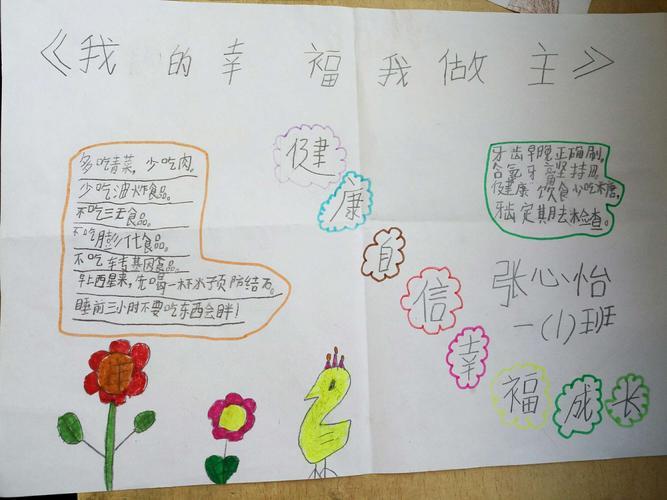 《我的幸福我做主》
多吃青菜，少吃肉。
少吃油炸食品。
不吃三无食品。
不吃膨化食品。
不吃转基因食品。
早上西星来，先喝一杯水预防结石。
睡前三小时不要吃东西会胖！
健康自信幸福成长
牙齿早晚正确刷。
含氟牙膏坚持用。
健康饮食少吃糖。
牙齿定期去检查。
张心怡
一(1)班